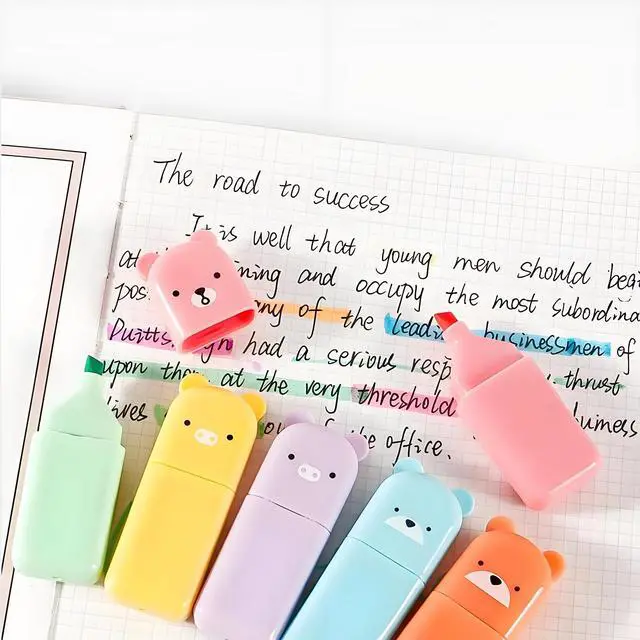 The road to success
It is well that young men should begi
at ining and occupy the most subordina
pos. any of the leadi businessmen of
Puitts. gh had a serious resp thrust
upon them at the very threshold
lives of the office. business